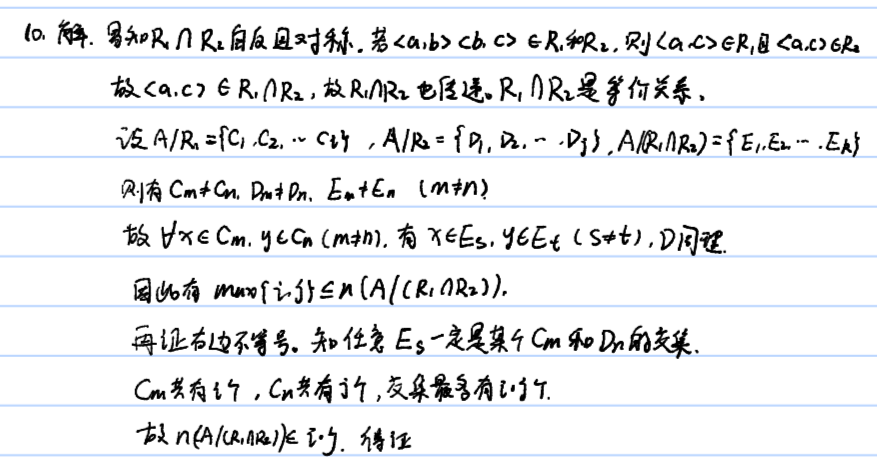 10. 解. 易知R₁∩R₂自反且对称. 若<a,b><b,c>∈R₁和R₂, 则<a,c>∈R₁且<a,c>∈R₂
故<a,c>∈R₁∩R₂, 故R₁∩R₂也传递。R₁∩R₂是等价关系.
设A/R₁={C₁,C₂,…Ci}, A/R₂={D₁,D₂,…,Dj}, A/(R₁∩R₂)={E₁,E₂…,Ek}
则有 Cm≠Cn, Dm≠Dn, Em≠En (m≠n)
故∀x∈Cm, y∈Cn (m≠n), 有 x∈Es, y∈Et (s≠t), D同理.
因此有 max{i,j}≤n(A/(R₁∩R₂)).
再证右边不等号。知任意 Es一定是某个Cm和Dn的交集.
Cm共有i个, Cn共有j个, 交集最多有i·j个.
故n(A/(R₁∩R₂))≤i·j. 得证